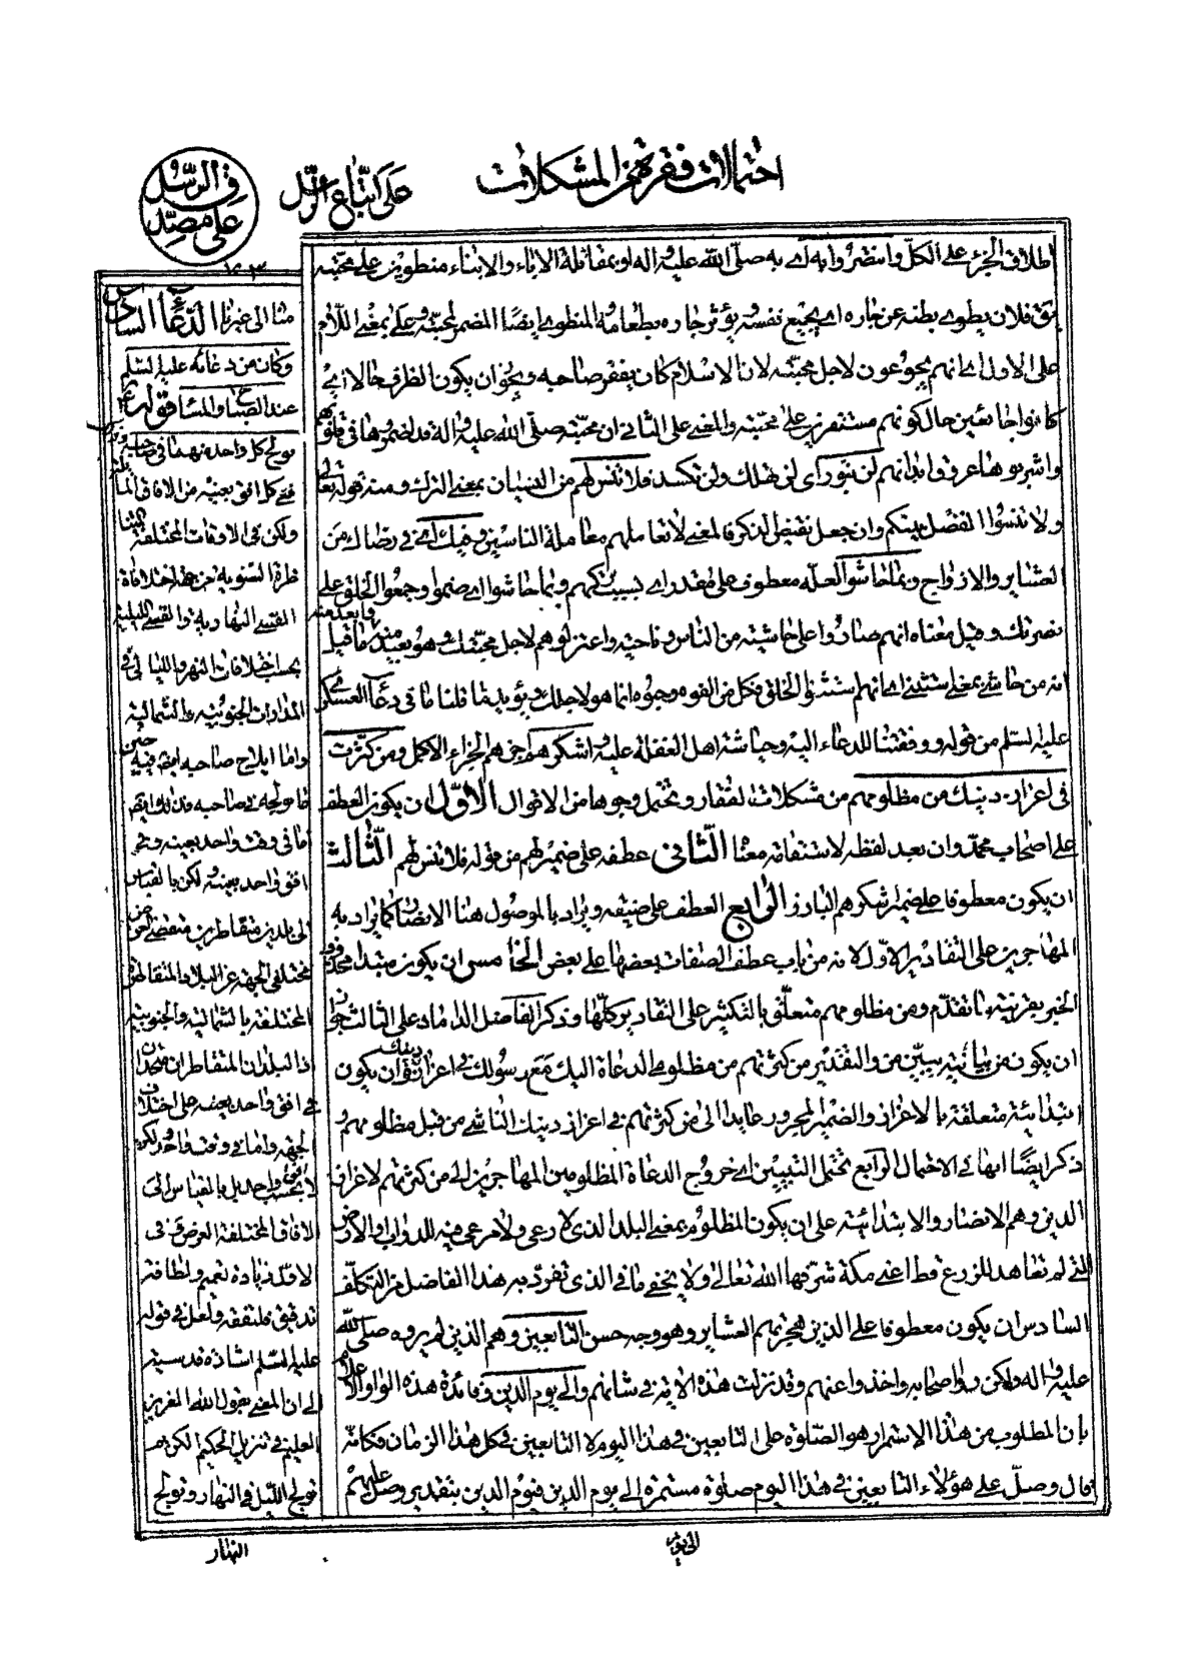 احتمالات فقرة من المشكلات
على اتباع الرسل
في الرسل
على مصدق
اطلاق الجزء على الكل وانتصروا به اى به صلّى الله عليه واله لو بمقاتلة الاباء والابناء منطوين على محبته
يق فلان يطوى بطنه عن جاره اى يجيع نفسه ويؤثر جاره بطعامه المنطوى ايضا المضمر لمحبته وعلى بمعنى اللام
على الاول اى انهم يجوعون لاجل محبته لان الاسلام كان يفقر صاحبه ويجوز ان يكون الظرف حالا اى
كانوا جائعين حال كونهم مستقرين على محبته والمعنى على الثانى ان محبته صلّى الله عليه واله قد اضمروها فى قلوبهم
واشربوها عروق ابدانهم لن تبور اى لن تهلك ولن تكسد فلا تنس لهم من النسيان بمعنى الترك ومنه قوله تعالى
ولا تنسوا الفضل بينكم وان جعل نقيض الذكر فالمعنى لا تعاملهم معاملة الناسين وفيك اى فى رضاك من
العشاير والازواج وبما حاشوا العله معطوف على مقدر اى بسبب تركهم وبما حاشوا اى ضموا وجمعوا الخلق على
نصرتك وقيل معناه انهم صاروا على حاشية من الناس وناحية واعتزلوهم لاجل محبتك وهو بعيد وابعد منه ما قيل
انه من حاشى بمعنى استثنى اى انهم استثنوا الخلق فكل من القوه وحبوه انما هو لاجلك ويؤيد ما قلنا ما فى دعاء العسكرى
عليه السلم من قوله ووفقتنا للدعاء اليه وحياشة اهل الغفلة عليه واشكرهم اجزهم الجزاء الاكمل ومن كثرت
فى اعزاز دينك من مظلومهم من مشكلات الفقار وتحتمل وجوها من الاقوال الاوّل ان يكون العطف
على اصحاب محمد وان بعد لفظه لاستقامة معناه الثّانى عطفه على ضمير لهم من قوله فلا تنس لهم الثّالث
ان يكون معطوفا على ضمير اشكرهم البارز الرّابع العطف على ضيقه ويراد بالموصول هنا الانصار كما يراد به
المهاجرين على التقادير الاول لانه من باب عطف الصفات بعضها على بعض الخامس ان يكون مبتدا محذوف
الخبر بقرينة ما تقدم ومن مظلومهم متعلّق بالتكثير على التقادير كلّها وذكر الفاضل الداماد على الثالث جواز
ان يكون من بيانية يبيّن من والتقدير من كثرتهم من مظلومى الدعاة اليك مع رسولك فى اعزاز دينك وان يكون
ابتدائية متعلقة بالاعزاز والضمير المجرور عايدا الى من كثرتهم فى اعزاز دينك الناشى من قبل مظلومهم و
ذكر ايضًا انها فى الاحتمال الرابع تحتمل التبيين اى خروج الدعاة المظلومين المهاجرين الى من كثرتهم لاعزاز
الدين وهم الانصار والابتدائية على ان يكون المظلوم بمعنى البلد الذى لا رعى ولا مرعى فيه للدواب والارض
التى لم تعاهد للزرع قط اعنى مكة شرفها الله تعالى ولا يخفى ما فى الذى تفرد به هذا الفاضل من التكلّف
السادس ان يكون معطوفا على الذين هجرتهم العشاير وهو وجه حسن التابعين وهم الذين لم يروه صلى الله
عليه واله ولكن راوا اصحابه واخذوا عنهم وقد نزلت هذه الاية فى شانهم والى يوم الدين وفائدة هذه الواو الاعلام
بان المطلوب من هذا الاستمرار هو الصّلوة على التابعين فى هذا اليوم لا التابعين فى كل هذا الزمان فكانه
قال وصلّ على هؤلاء التابعين فى هذا اليوم صلوة مستمرة الى يوم الدين فيوم الدين بتقدير وصل عليهم
الى يوم
مثالى غيرنا الدّعاء السادس
وكان من دعائه عليه السلم
عند الصباح والمساء قوله
يولج كل واحد منهما فى صاحبه
فى كل افق بعينه من الافاق المائلة
ولكن فى الاوقات المختلفة
القسى النهارية والقسى الليلية
بحسب اختلافات النهر والليالى فى
المدارات الجنوبية والشمالية
واما ايلاج صاحبه ايضا فيه حين
ما يولجه فى صاحبه فذلك ايضا
اما فى وقت واحد بعينه وفى
افق واحد بعينه لكن بالقياس
الى بلدين متقاطرين
مختلفى الجهة عن البلاد المتقاطرة
المختلفة بالشمالية والجنوبية
اذ البلدان المتقاطران متحدان
فى افق واحد بعينه على اختلاف
الجهة واما فى وقت واحد لكن
لا بحسب افق واحد بل بالقياس الى
الافاق المختلفة العرض فى
الاقل زيادة تعميم ولطافة
تدقيق ملتقفة ولعل فى قوله
عليه السلم اشارة قدسية
الى ان المعنى بقول الله العزيز
العليم فى تنزيله الحكيم الكريم
تولج الليل فى النهار وتولج
النهار